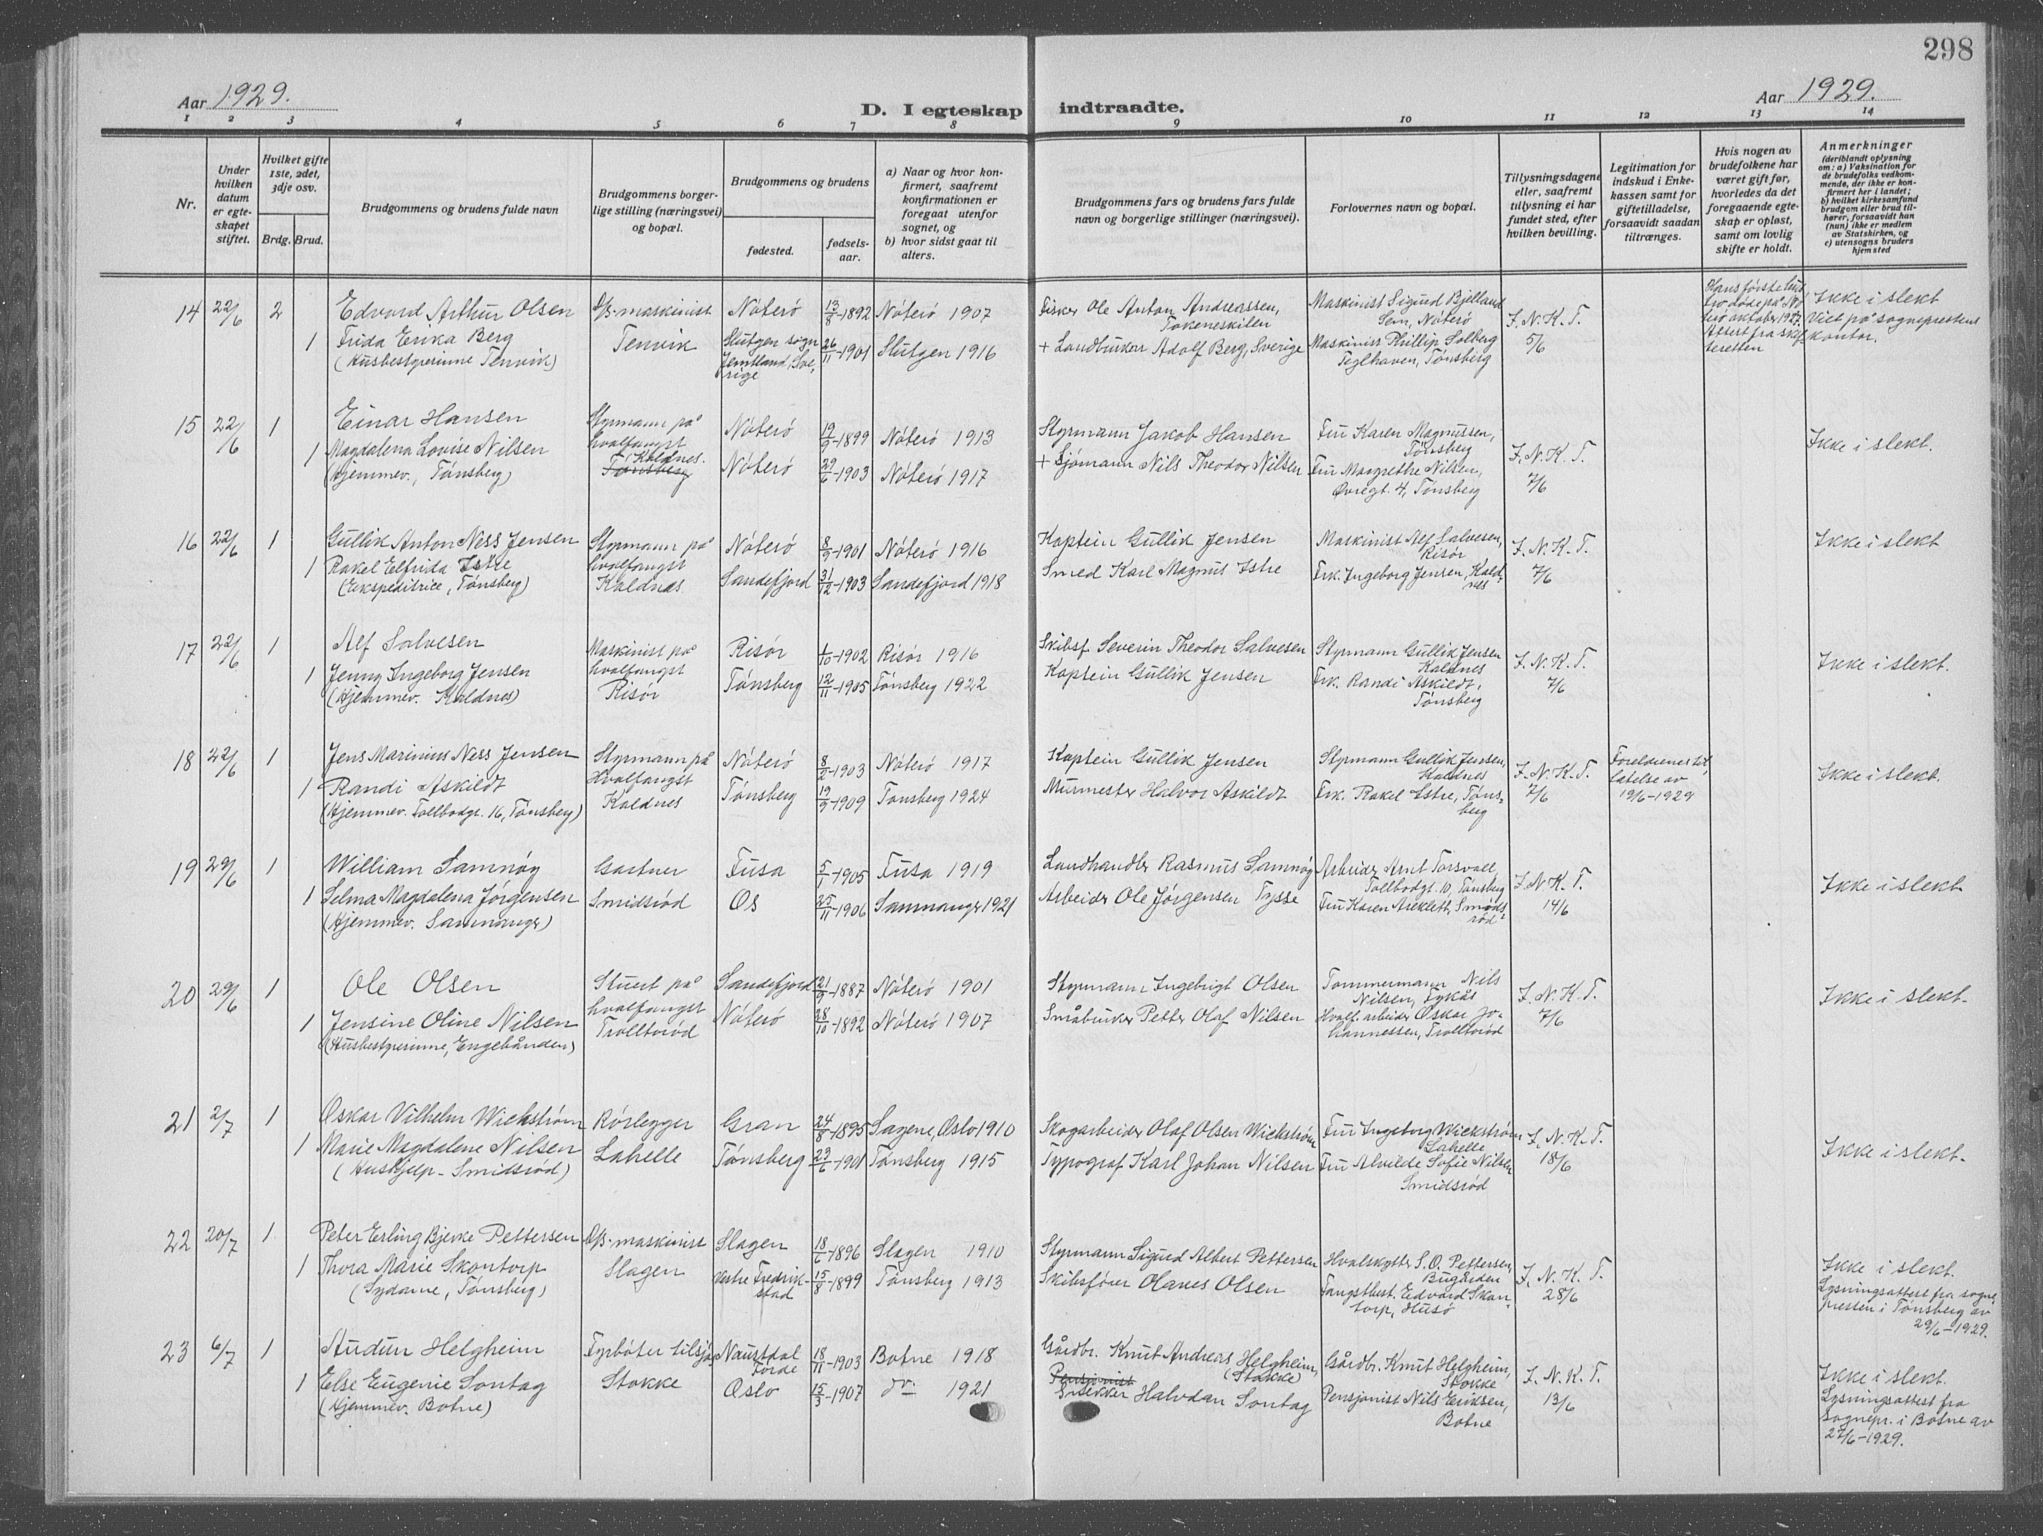 298
Aar 1929.
D. I egteskap indtraadte.
Aar 1929.
1 2 3 4 5 6 7 8 9 10 11 12 13 14
Nr.
Under hvilken datum er egteskapet stiftet.
Hvilket gifte 1ste, 2det, 3dje osv.
Brdg. Brud.
Brudgommens og brudens fulde navn
Brudgommens borgerlige stilling (næringsvei) og bopæl.
Brudgommens og brudens
fødested.
fødselsaar.
a) Naar og hvor konfirmert, saafremt konfirmationen er foregaat utenfor sognet, og
b) hvor sidst gaat til alters.
Brudgommens fars og brudens fars fulde navn og borgerlige stillinger (næringsvei).
Forlovernes navn og bopæl.
Tillysningsdagene eller, saafremt tillysning ei har fundet sted, efter hvilken bevilling.
Legitimation for indskud i Enkekassen samt for giftetilladelse, forsaavidt saadan tiltrænges.
Hvis nogen av brudefolkene har været gift før, hvorledes da det foregaaende egteskap er opløst, samt om lovlig skifte er holdt.
Anmerkninger
(deriblandt oplysning om: a) Vaksination for de brudefolks vedkommende, der ikke er konfirmert her i landet; b) hvilket kirkesamfund brudgom eller brud tilhører, forsaavidt han (hun) ikke er medlem av Statskirken, og c) utensogns bruders hjemsted
14 22/6 2 Edvard Arthur Olsen D/S-maskinist Nøterø 13/8-1892 Nøterø 1907 Fisker Ole Anton Andreassen, Maskinist Sigurd Bjelland
Tokeneskilen Sem, Nøterø F. N. K. T. Ikke i slekt
1 Frida Erika Berg Tenvik Slutgen sogn 26/11-1901 Slutgen 1916 + Landbruker Adolf Berg, Sverige Maskinist Phillip Solberg 5/6 Viet på sogneprestens
(Husbestyrerinne Tenvik) Jemtland, Sverige Teglhaven, Tønsberg kontor.
15 22/6 1 Einar Hansen Styrmann på Nøterø 19/9-1899 Nøterø 1913 Styrmann Jakob Hansen Fru Karen Magnussen,
hvalfangst Tønsberg F. N. K. T. Ikke i slekt.
1 Magdalena Lovise Nilsen Kaldnes. Nøterø 29/6-1903 Nøterø 1917 + Sjømann Nils Theodor Nilsen Fru Margrethe Nilsen, 7/6
(Hjemmev., Tønsberg) Tønsberg Øvregt. 4, Tønsberg
16 22/6 1 Gullik Anton Ness Jensen Styrmann på Nøterø 8/9-1901 Nøterø 1916 Kaptein Gullik Jensen Maskinist Alf Salvesen, F. N. K. T. Ikke i slekt
hvalfangst Risør
1 Rakel Elfrida Istre Kaldnes Sandefjord 31/12-1903 Sandefjord 1918 Smed Karl Magnus Istre Frk. Ingeborg Jensen, Kaldnes 7/6
(Ekspeditrice, Tønsberg)
17 22/6 1 Alf Salvesen Maskinist på Risør 1/10-1902 Risør 1916 Skibsf. Severin Theodor Salvesen Styrmann Gullik Jensen
hvalfangst Kaldnes F. N. K. T. Ikke i slekt.
1 Jenny Ingeborg Jensen Risør Tønsberg 12/11-1905 Tønsberg 1922 Kaptein Gullik Jensen Frk. Randi Askildt, 7/6
(Hjemmev. Kaldnes) Tønsberg
18 22/6 1 Jens Marinius Ness Jensen Styrmann på Nøterø 8/2-1903 Nøterø 1917 Kaptein Gullik Jensen Styrmann Gullik Jensen, Foreldrenes til-
Hvalfangst Kaldnes F. N. K. T. latelse av Ikke i slekt.
1 Randi Askildt Kaldnes Tønsberg 19/9-1909 Tønsberg 1924 Murmester Halvor Askildt Frk. Rakel Istre, Tønsberg 7/6 19/6-1929
(Hjemmev. Tollbodgt. 16, Tønsberg)
19 29/6 1 William Samnøy Gartner Fusa 5/1-1905 Fusa 1919 Landhandler Rasmus Samnøy Arbeider Arnt Torsvall,
Tollbodgt. 10, Tønsberg F. N. K. T. Ikke i slekt
1 Selma Magdalena Jørgensen Smidsrød Os 25/11-1906 Samnanger 1921 Arbeider Ole Jørgensen Tysse Fru Karen Areklett, Smidsrød 14/6
(Hjemmev. Samnanger)
20 29/6 1 Ole Olsen Stuert på Sandefjord 21/9-1887 Nøterø 1901 Styrmann Ingebrigt Olsen Tømmermann Nils
hvalfangst Nilsen, F. N. K. T. Ikke i slekt.
1 Jensine Oline Nilsen Trolltorød Nøterø 28/10-1892 Nøterø 1907 Småbruker Petter Olaf Nilsen Hvalf. arbeider Oskar Jo- 7/6
(Husbestyrerinne, Engebånden) hannessen, Trolltorød
21 2/7 1 Oskar Vilhelm Wickstrøm Rørlegger Gran 24/8-1895 Sagene, Oslo 1910 Skogarbeider Olaf Olsen Wickstrøm Fru Ingeborg Wickstrøm F. N. K. T.
Labelle Ikke i slekt.
1 Marie Magdalene Nilsen Labelle Tønsberg 29/6-1901 Tønsberg 1915 Typograf Karl Johan Nilsen Fru Alvilde Sofie Nilsen 18/6
(Hushjelp - Smidsrød) Smidsrød
22 20/7 1 Peter Erling Bjerke Pettersen D/S-maskinist Slagen 18/6-1896 Slagen 1910 Styrmann Sigurd Albert Pettersen Hvalskytter S. O. Pettersen,
Bugården F. N. K. T. Ikke i slekt.
1 Thora Marie Skontorp Slagen Vestre Fredrikstad 15/8-1899 Tønsberg 1913 Skibsfører Hanes Olsen Fangstbest. Edvard Skon- 28/6 Lysningsattest fra sogne-
(Sydame, Tønsberg) torp, Husø presten i Tønsberg av
29/6-1929.
23 6/7 1 Audun Helgheim Fyrbøter tilsjøs Naustdal 18/11-1903 Botne 1918 Gårdbr. Knut Andreas Helgheim, Gårdbr. Knut Helgheim,
Førde (Stokke) Stokke F. N. K. T. Ikke i slekt.
1 Else Eugenie Sontag Stokke Oslo 15/3-1907 do 1921 Pensjonist Pensjonist Nils Eriksen, 13/6 Lysningsattest fra
(Hjemmev. Botne) Snekker Halvdan Sontag Botne sognepr. i Botne av
27/6-1929.